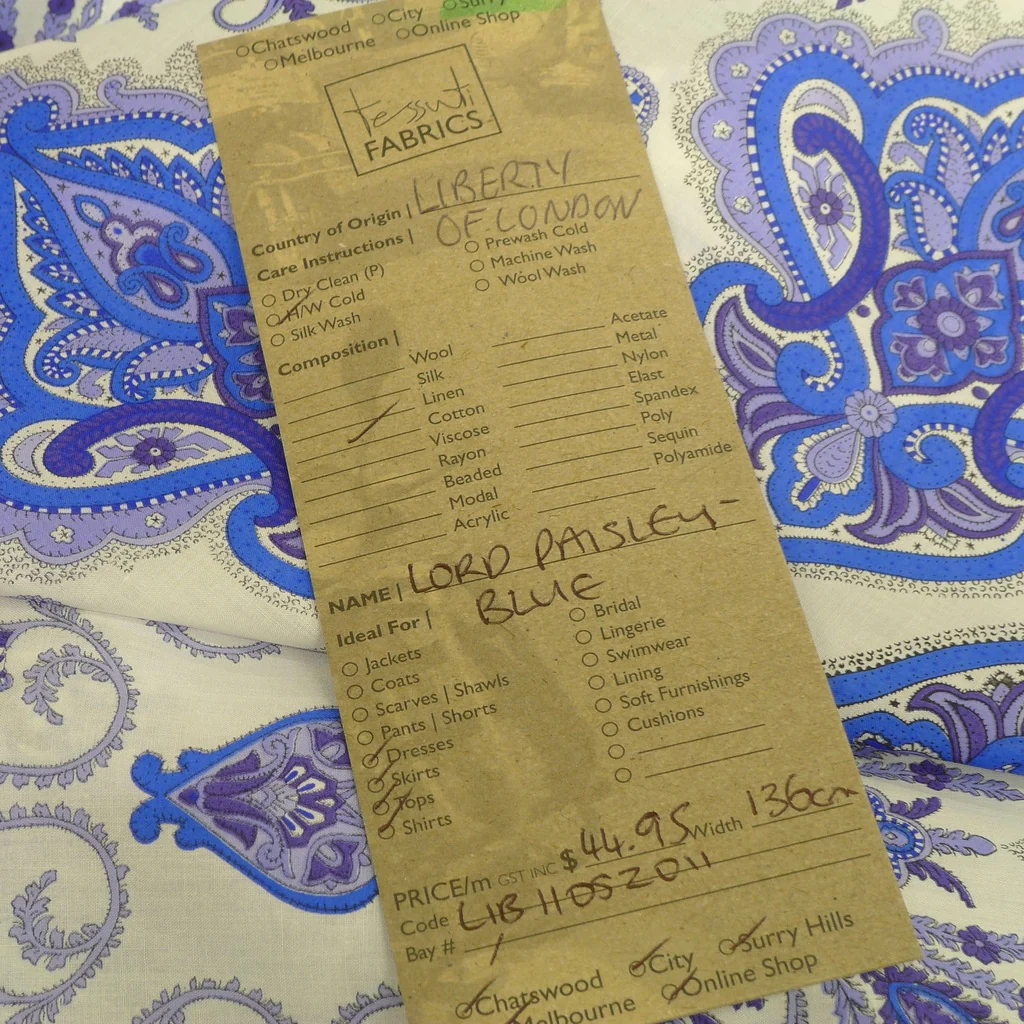 City Surry
Chatswood
Melbourne Online Shop
tessuti
FABRICS
Country of Origin | LIBERTY
OF LONDON
Care Instructions |
Dry Clean (P) Prewash Cold
H/W Cold Machine Wash
Silk Wash Wool Wash
Composition |
Wool Acetate
Silk Metal
Linen Nylon
Cotton Elast
Viscose Spandex
Rayon Poly
Beaded Sequin
Modal Polyamide
Acrylic
NAME | LORD PAISLEY -
BLUE
Ideal For |
Jackets Bridal
Coats Lingerie
Scarves | Shawls Swimwear
Pants | Shorts Lining
Dresses Soft Furnishings
Skirts Cushions
Tops
Shirts
PRICE/m GST INC $44.95 Width 136cm
Code LIB1105Z011
Bay # 1
Chatswood City Surry Hills
Melbourne Online Shop